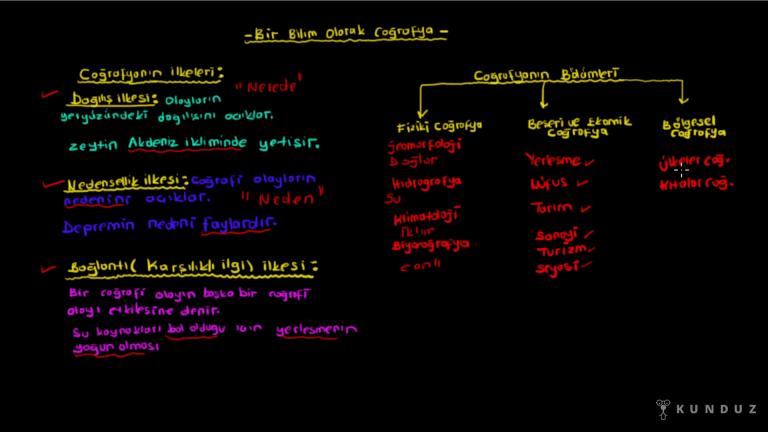 -Bir Bilim Olarak Coğrafya-
Coğrafyanın ilkeleri:
Dağılış ilkesi: Olayların "Nerede"
yeryüzündeki dağılışını açıklar.
zeytin Akdeniz ikliminde yetişir.
Nedensellik ilkesi: Coğrafi olayların
nedenini açıklar. "Neden"
Depremin nedeni faylardır.
Bağlantı (Karşılıklı ilgi) ilkesi:
Bir coğrafi olayın başka bir coğrafi
olayı etkilesine denir.
Su kaynakları bol olduğu için yerleşmenin
yoğun olması
Coğrafyanın Bölümleri
Fiziki Coğrafya
Jeomorfoloji
Dağlar
Hidrografya
Su
Klimatoloji
İklim
Biyocoğrafya
canlı
Beşeri ve Ekonomik
Coğrafya
Yerleşme
Nüfus
Tarım
Sanayi
Turizm
siyasi
Bölgesel
Coğrafya
Ülkeler coğ.
Kıtalar coğ.
KUNDUZ